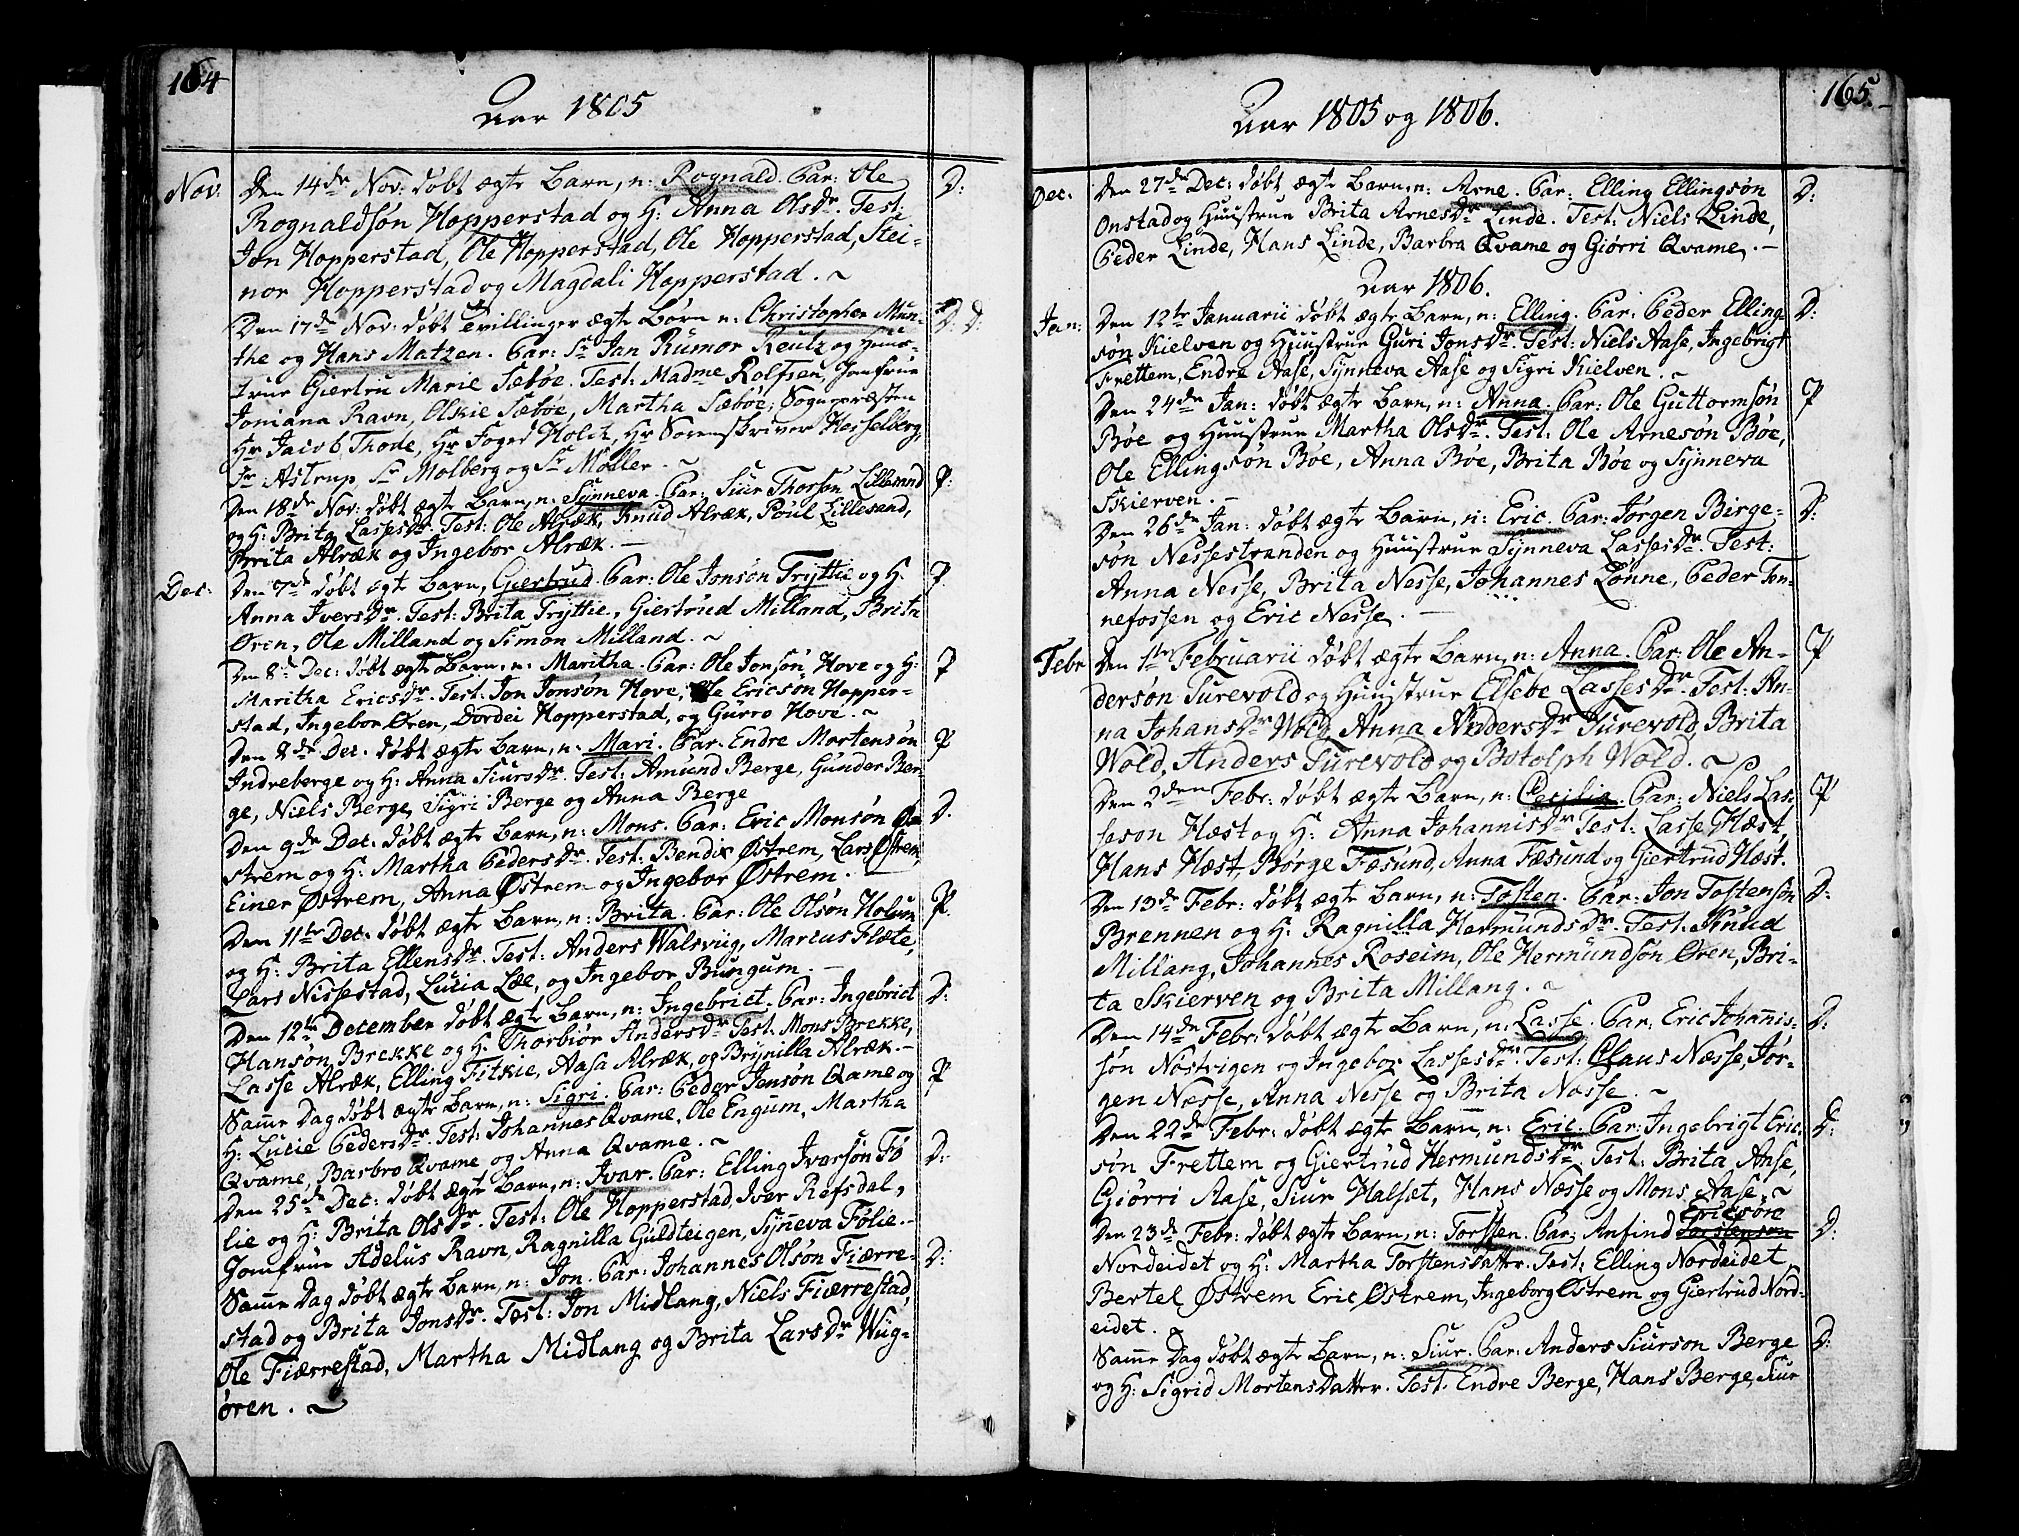 164
Aar 1805
Nov. Den 14de Nov: døbt ægte Barn, n: Rognald. Par: Ole D:
Rognaldsøn Hopperstad og H: Anna Olsdr. Test:
Jon Hopperstad, Ole Hopperstad, Ole Hopperstad, Stei-
nor Hopperstad og Magdali Hopperstad. ~
Den 17de Nov: døbt Tvillinger ægte Børn n: Christopher Mun- D: D:
the og Hans Matzen. Par: Sr Jan Rumor Reutz og Huus-
true Giertru Marie Sæbøe. Test: Madme Rolfsen, Jomfrue
Joniana Ravn, Olskie Sæbøe, Martha Sæbøe, Sognepræsten
Hr Jacob Thode, Hr Foged Holck, Hr Sorenskriver Hesselberg,
Sr Astrup, Sr Molberg og Sr Møller. ~
Den 18de Nov: døbt ægte Barn, n: Synneva. Par: Siur Thorsøn Lillesand P:
og H: Brita Lassesdr. Test: Ole Alræk, Knud Alræk, Poul Lillesand,
Brita Alræk og Ingebor Alræk. —
Dec: Den 7de døbt ægte Barn, Giertrud. Par: Ole Jonsøn Tryttie og H: P.
Anna Iversdr. Test: Brita Tryttie, Giertrud Milland, Brita
Øren, Ole Milland og Simon Milland. ~
Den 8de Dec: døbt ægte Barn, n: Maritha. Par: Ole Jonsøn Hove og H: P
Maritha Ericsdr. Test: Jon Jonsøn Hove, Ole Ericsøn Hopper-
stad, Ingebor Øren, Dordei Hopperstad, og Gurro Hove. ~
Den 8de Dec. døbt ægte Barn, n: Mari. Par. Endre Mortensøn P
Indreberge og H: Anna Siursdr. Test: Amund Berge, Gunder Ber-
ge, Niels Berge, Sigri Berge og Anna Berge
Den 9de Dec: døbt ægte Barn, n: Mons. Par: Eric Monsøn Ø D.
strem og H: Martha Pedersdr. Test: Bendix Østrem, Lars Østrem,
Einer Østrem, Anna Østrem og Ingebor Østrem.
Den 11te Dec: døbt ægte Barn, n: Brita. Par: Ole Olsøn Holum P.
og H: Brita Ellensdr. Test: Anders Walsviig, Marcus Flæte,
Lars Nissestad, Lucia Læ, og Ingebor Bungum. —
Den 12te December døbt ægte Barn, n: Ingebrict. Par: Ingebrict D:
Hansøn Brekke og H: Thorbiør Andersdr Test: Mons Brekke,
Lasse Alræk, Elling Fitkie, Aasa Alræk, og Brynilla Alræk. —
Samme Dag døbt ægte Barn, n: Sigri. Par: Peder Jensøn Qvame og P
H: Lucie Pedersdr. Test: Johannes Qvame, Ole Engum, Martha
Qvame, Barbro Qvame og Anna Qvame. ~
Den 25de Dec: døbt ægte Barn, n: Ivar. Par: Elling Ivarsøn Fø D:
lie og H: Brita Olsdr. Test: Ole Hopperstad, Iver Refsdal,
Jomfrue Adelus Ravn, Ragnilla Guldteigen, Synneva Følie. —
Samme Dag døbt ægte Barn, n: Jon. Par: Johannes Olsøn Fiærre- D:
stad og Brita Jonsdr. Test: Jon Midlang, Niels Fiærrestad,
Ole Fiærrestad, Martha Midlang og Brita Larsdr Wiig-
øren. ~
165.
Aar 1805 og 1806.
Dec. Den 27de Dec: døbt ægte Barn, n: Arne. Par: Elling Ellingsøn D:
Onstad og Huustrue Brita Arnesdr Linde. Test: Niels Linde,
Peder Linde, Hans Linde, Barbra Qvame og Giørri Qvame. —
Aar 1806.
Jan: Den 12te Januarii døbt ægte Barn, n: Elling. Par: Peder Elling D:
søn Kielven og Huustrue Guri Jonsdr. Test: Niels Aase, Ingebrigt
Frettem, Endre Aase, Synneva Aase og Sigri Kielven. ~
Den 24de Jan: døbt ægte Barn, n: Anna. Par: Ole Guttormsøn P
Bøe og Huustrue Martha Olsdr. Test: Ole Arnesøn Bøe,
Ole Ellingsøn Bøe, Anna Bøe, Brita Bøe og Synneva
Skierven. —
Den 26de Jan: døbt ægte Barn, n: Eric. Par: Jørgen Birge- D:
søn Nessestranden og Huustrue Synneva Lassesdr. Test:
Anna Nesse, Brita Nesse, Johannes Lønne, Peder Ten-
nefossen og Eric Nesse. —
Febr Den 1ste Februarii døbt ægte Barn, n: Anna. Par: Ole An- P
dersøn Turevold og Huustrue Elsebe Lassesdr. Test: An-
na Johansdr Wold, Anna Andersdr Turevold, Brita
Wold, Anders Turevold og Botolph Wold. ~
Den 2den Febr: døbt ægte Barn, n: Cecilia. Par: Niels Las- P
seson Hæst og H: Anna Johannisdr Test: Lasse Hæst,
Hans Hæst, Børge Føsund, Anna Fæsund og Giertrud Hæst.
Den 13de Febr: døbt ægte Barn, n: Tosten. Par: Jon Tostensøn D:
Brennen og H: Ragnilla Hermundsdr. Test: Knud
Millang, Johannes Roseim, Ole Hermundsøn Øren, Bri-
ta Skierven og Brita Millang. ~
Den 14de Febr: døbt ægte Barn, n: Lasse. Par: Eric Johannis- D:
søn Nostvigen og Ingebor Lassesdr. Test: Claus Næsse, Jør-
gen Næsse, Anna Nesse og Brita Næsse. ~
Den 22de Febr: døbt ægte Barn, n: Eric. Par: Ingebrigt Eric- D:
søn Frettem og Giertrud Hermundsdr. Test: Brita Aase,
Giørri Aase, Siur Halset, Hans Næsse og Mons Aase. ~
Ericsøn
Den 23de Febr: døbt ægte Barn, n: Torsten. Par: Anfind Torstenson D:
Nordeidet og H: Martha Torstensdatter. Test: Elling Nordeidet,
Bertel Østrem Eric Østrem, Ingeborg Østrem og Giertrud Nord-
eidet. ~
Samme Dag døbt ægte Barn, n: Siur. Par: Anders Siurson Berge D:
og H: Sigrid Mortensdatter. Test. Endre Berge, Hans Berge, Siur